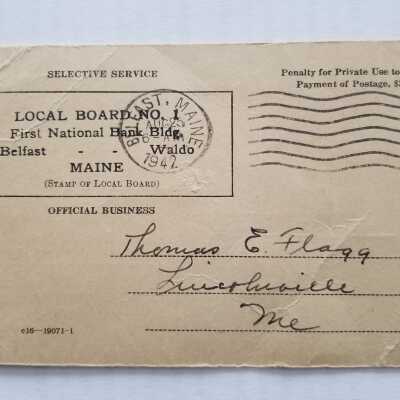 SELECTIVE SERVICE
Penalty for Private Use to
Payment of Postage, $
LOCAL BOARD NO. 1
First National Bank Bldg.
Belfast - - Waldo
MAINE
(STAMP OF LOCAL BOARD)
BELFAST, MAINE
AUG
1942
OFFICIAL BUSINESS
Thomas E Flagg
Lincolnville
Me
c16—19071-1